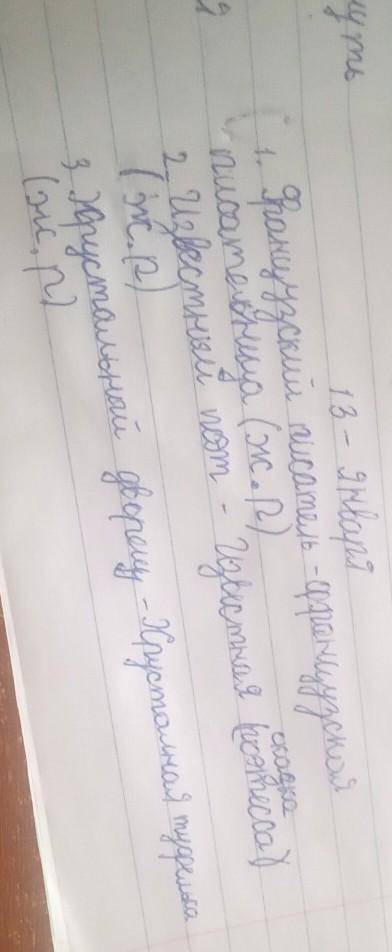 уть
13 - января
1. Французский писатель - французская
писательница (ж.р)
сказка
2. Известный поэт - Известная (поэтесса)
(ж.р)
3. Хрустальный дворец - Хрусталная туфелька
(ж.р)